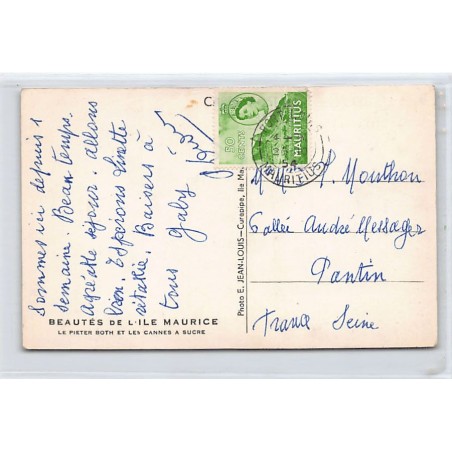 Sommes ici depuis 1
semaine. Beau temps.
agréable séjour. allons
bien. Espérons Linette
rétablie. Baisers à
tous Gaby
BEAUTÉS DE L'ILE MAURICE
LE PIETER BOTH ET LES CANNES A SUCRE
Photo E. JEAN-LOUIS — Curepipe, Ile Ma
C
50
CENTS
MAURITIUS
MAURITIUS
Mouthon
7 allée André Messager
Pantin
France Seine